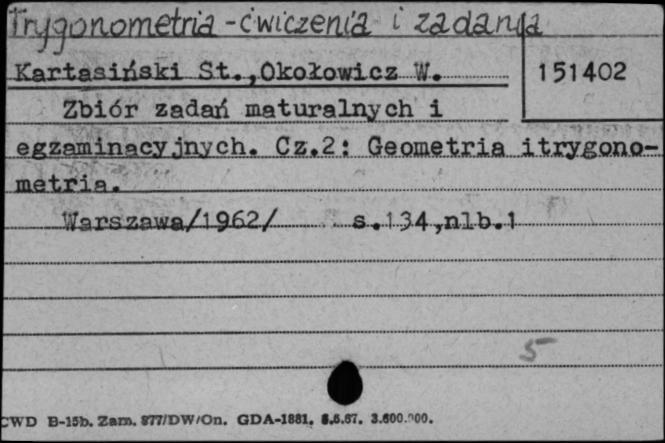 Trygonometria - ćwiczenia i zadania
Kartasiński St.,Okołowicz W.
151402
Zbiór zadań maturalnych i
egzaminacyjnych. Cz.2: Geometria itrygono-
metria.
Warszawa/1962/ s.134,nlb.1
5
CWD B-15b. Zam. 877/DW/On. GDA-1881. 5.5.67. 3.600.000.